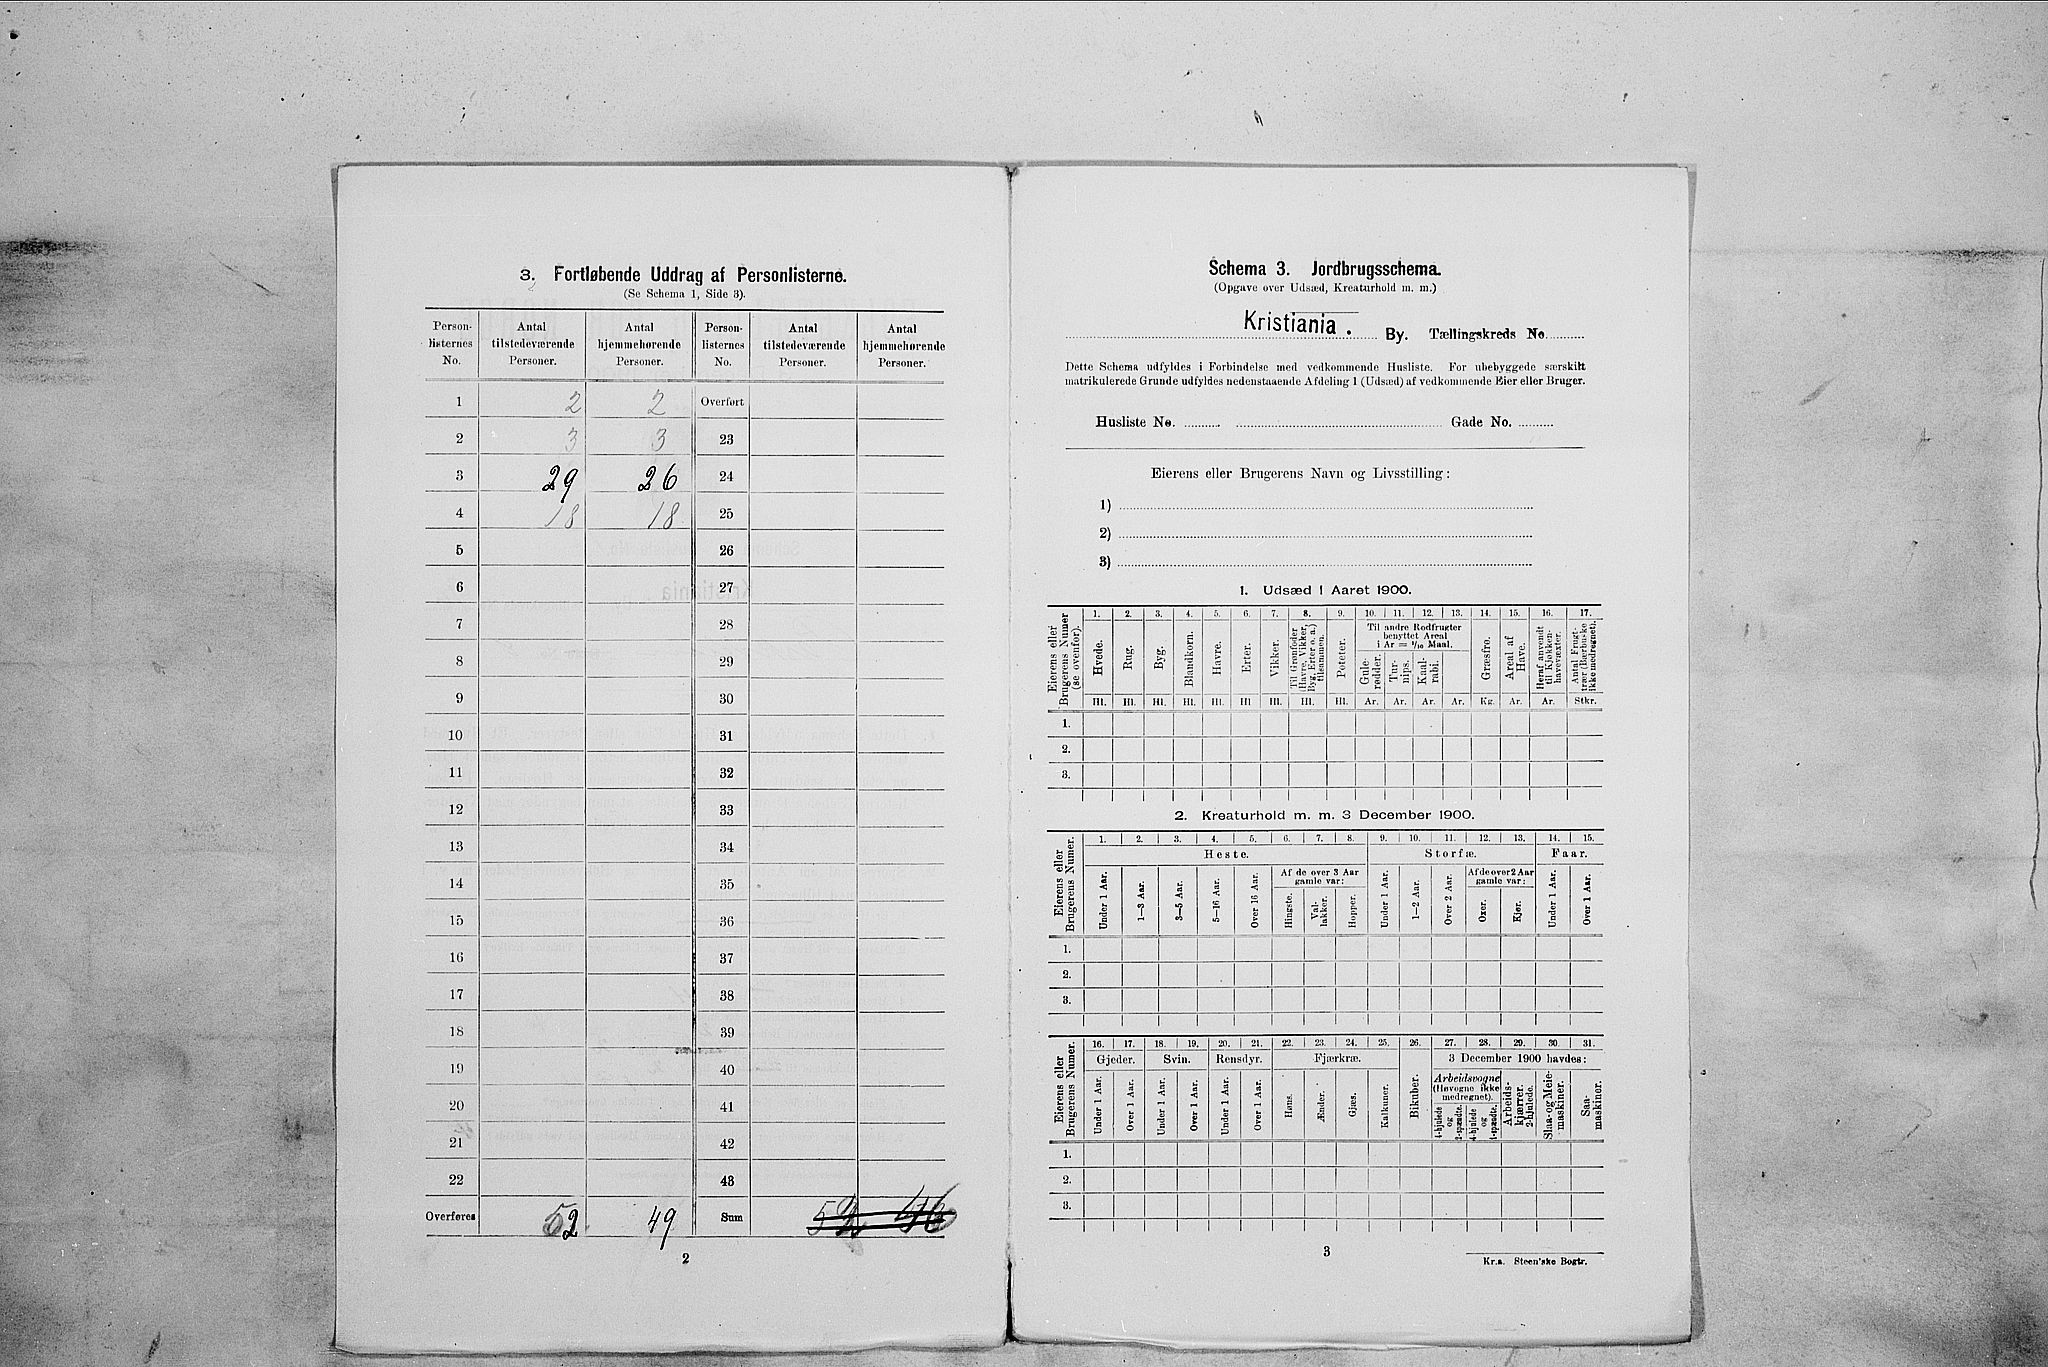 3. Fortløbende Uddrag af Personlisterne.
(Se Schema 1, Side 3).
Person-listernes No. Antal tilstedeværende Personer. Antal hjemmehørende Personer. Person-listernes No. Antal tilstedeværende Personer. Antal hjemmehørende Personer.
1 2 2 Overført
2 3 3 23
3 29 26 24
4 18 18 25
5 26
6 27
7 28
8 29
9 30
10 31
11 32
12 33
13 34
14 35
15 36
16 37
17 38
18 39
19 40
20 41
21 42
22 43
Overføres 52 49 Sum
2
Schema 3. Jordbrugsschema.
(Opgave over Udsæd, Kreaturhold m. m.)
Kristiania. By. Tællingskreds No
Dette Schema udfyldes i Forbindelse med vedkommende Husliste. For ubebyggede særskilt
matrikulerede Grunde udfyldes nedenstaaende Afdeling 1 (Udsæd) af vedkommende Eier eller Bruger.
Husliste No. Gade No.
Eierens eller Brugerens Navn og Livsstilling:
1)
2)
3)
1. Udsæd i Aaret 1900.
Eierens eller Brugerens Numer (se ovenfor).
1. 2. 3. 4. 5. 6. 7. 8. 9. 10. 11. 12. 13. 14. 15. 16. 17.
Hvede. Rug. Byg. Blandkorn. Havre. Erter. Vikker. Til Grønfoder (Havre, Vikker, Byg, Erter o. a.) tilsammen. Poteter.
Til andre Rodfrugter benyttet Areal i Ar = 1/10 Maal.
Gule-rødder. Tur-nips. Kaal-rabi.
Græsfrø. Areal af Have. Heraf anvendt til Kjøkken-havevæxter. Antal Frugt-trær (Bærbuske ikke medregnet).
Hl. Hl. Hl. Hl. Hl. Hl Hl. Hl. Hl. Ar. Ar. Ar. Ar. Kg. Ar. Ar. Stkr.
1.
2.
3.
2. Kreaturhold m. m. 3 December 1900.
Eierens eller Brugerens Numer.
1. 2. 3. 4. 5. 6. 7. 8. 9. 10. 11. 12. 13. 14. 15.
Heste. Storfæ. Faar.
Under 1 Aar. 1—3 Aar. 3—5 Aar. 5—16 Aar. Over 16 Aar.
Af de over 3 Aar gamle var:
Hingste. Val-lakker. Hopper.
Under 1 Aar. 1—2 Aar. Over 2 Aar.
Af de over 2 Aar gamle var:
Oxer. Kjør.
Under 1 Aar. Over 1 Aar.
1.
2.
3.
Eierens eller Brugerens Numer.
16. 17. 18. 19. 20. 21. 22. 23. 24. 25. 26. 27. 28. 29. 30. 31.
Gjeder. Svin. Rensdyr. Fjærkræ. 3 December 1900 havdes:
Under 1 Aar. Over 1 Aar. Under 1 Aar. Over 1 Aar. Under 1 Aar. Over 1 Aar.
Høns. Ænder. Gjæs. Kalkuner. Bikuber.
Arbeidsvogne (Høvogne ikke medregnet).
4-hjulede og 2-spændte. 4-hjulede og 1-spændte.
Arbeids-kjærrer, 2-hjulede. Slaa- og Meie-maskiner. Saa-maskiner.
1.
2.
3.
3
Kr.a. Steen'ske Bogtr.